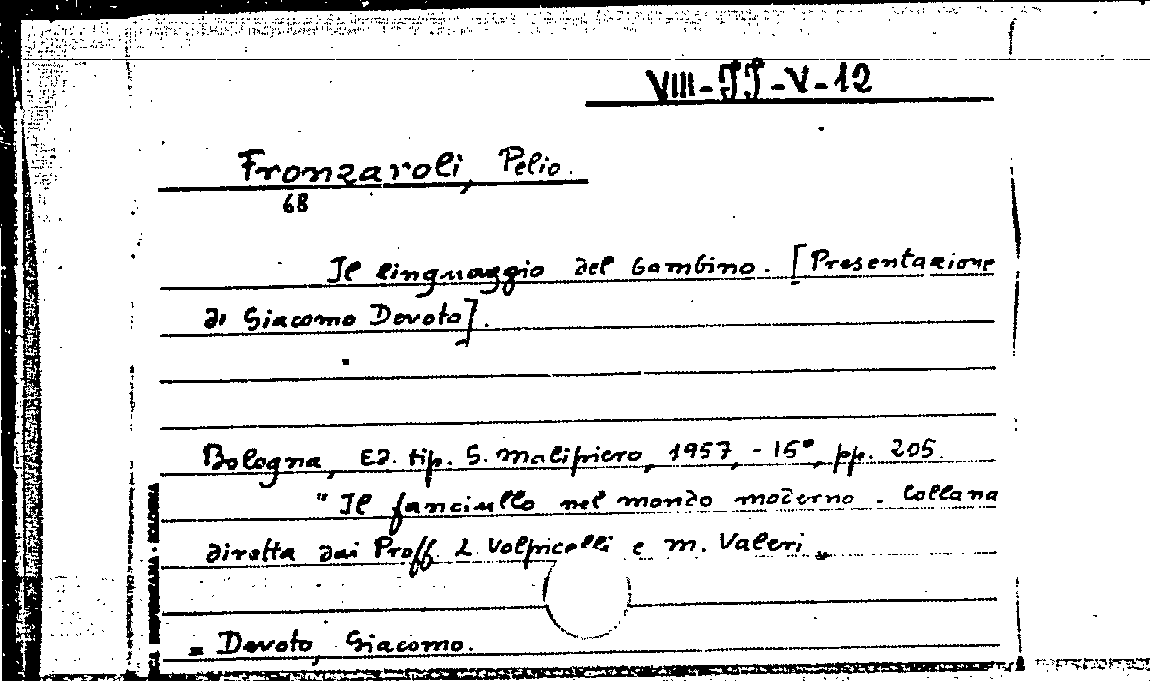 VIII-JJ-V-12
Fronzaroli, Pelio.
68
Il linguaggio del bambino. [Presentazione
di Giacomo Devoto].
Bologna, Ed. tip. S. Malipiero, 1957, - 15°, pp. 205.
"Il fanciullo nel mondo moderno - Collana
diretta dai Proff. L. Volpicelli e M. Valeri"
= Devoto, Giacomo.
BOLOGNA